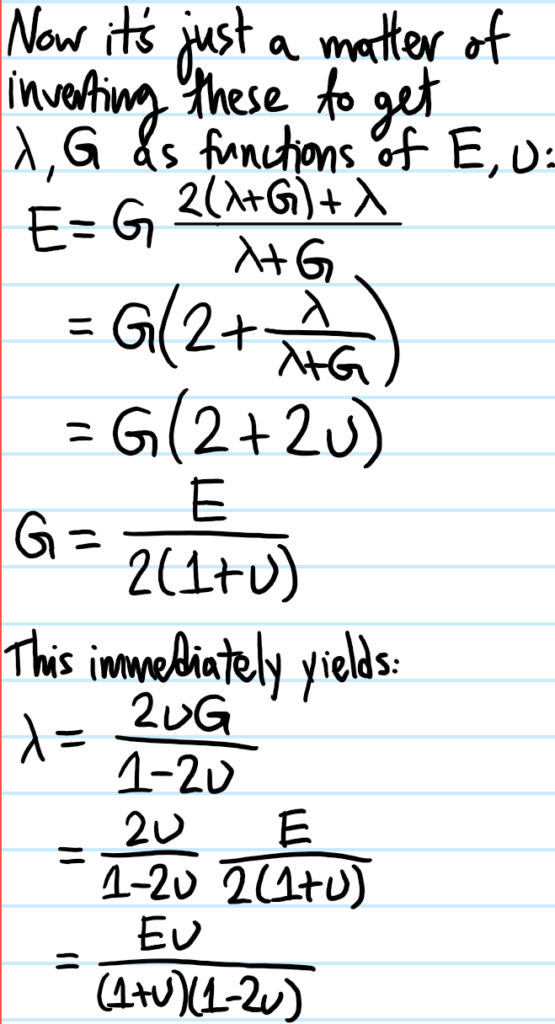 Now it's just a matter of
inverting these to get
λ, G as functions of E, υ:
E = G (2(λ+G)+λ)/(λ+G)
= G(2 + λ/(λ+G))
= G(2+2υ)
G = E/(2(1+υ))
This immediately yields:
λ = 2υG/(1-2υ)
= 2υ/(1-2υ) E/(2(1+υ))
= Eυ/((1+υ)(1-2υ))